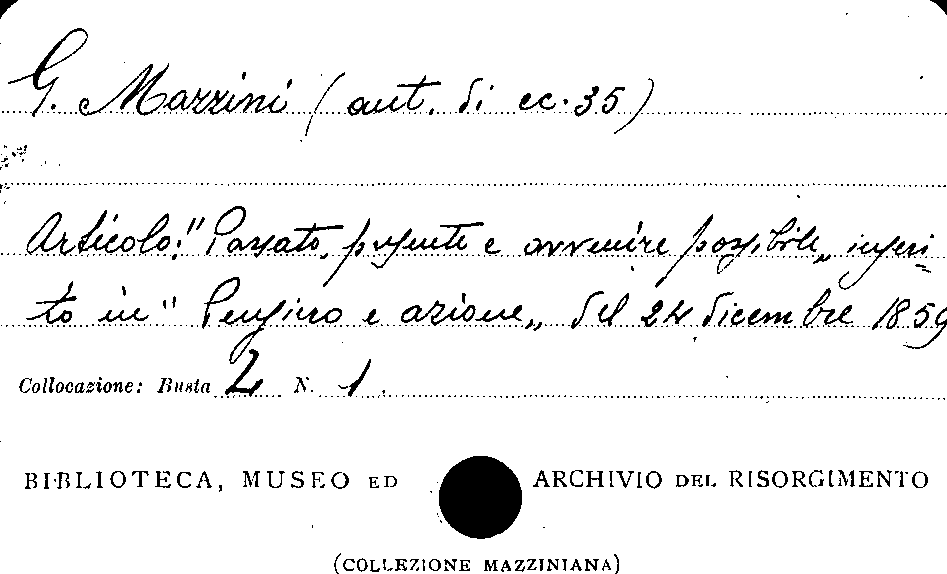 G. Mazzini (aut. di cc. 35)
Articolo: "Passato, presente e avvenire possibile„ inseri=
to in "Pensiero e azione„ del 24 dicembre 1859
Collocazione: Busta 2 N. 1.
BIBLIOTECA, MUSEO ED ARCHIVIO DEL RISORGIMENTO
(COLLEZIONE MAZZINIANA)